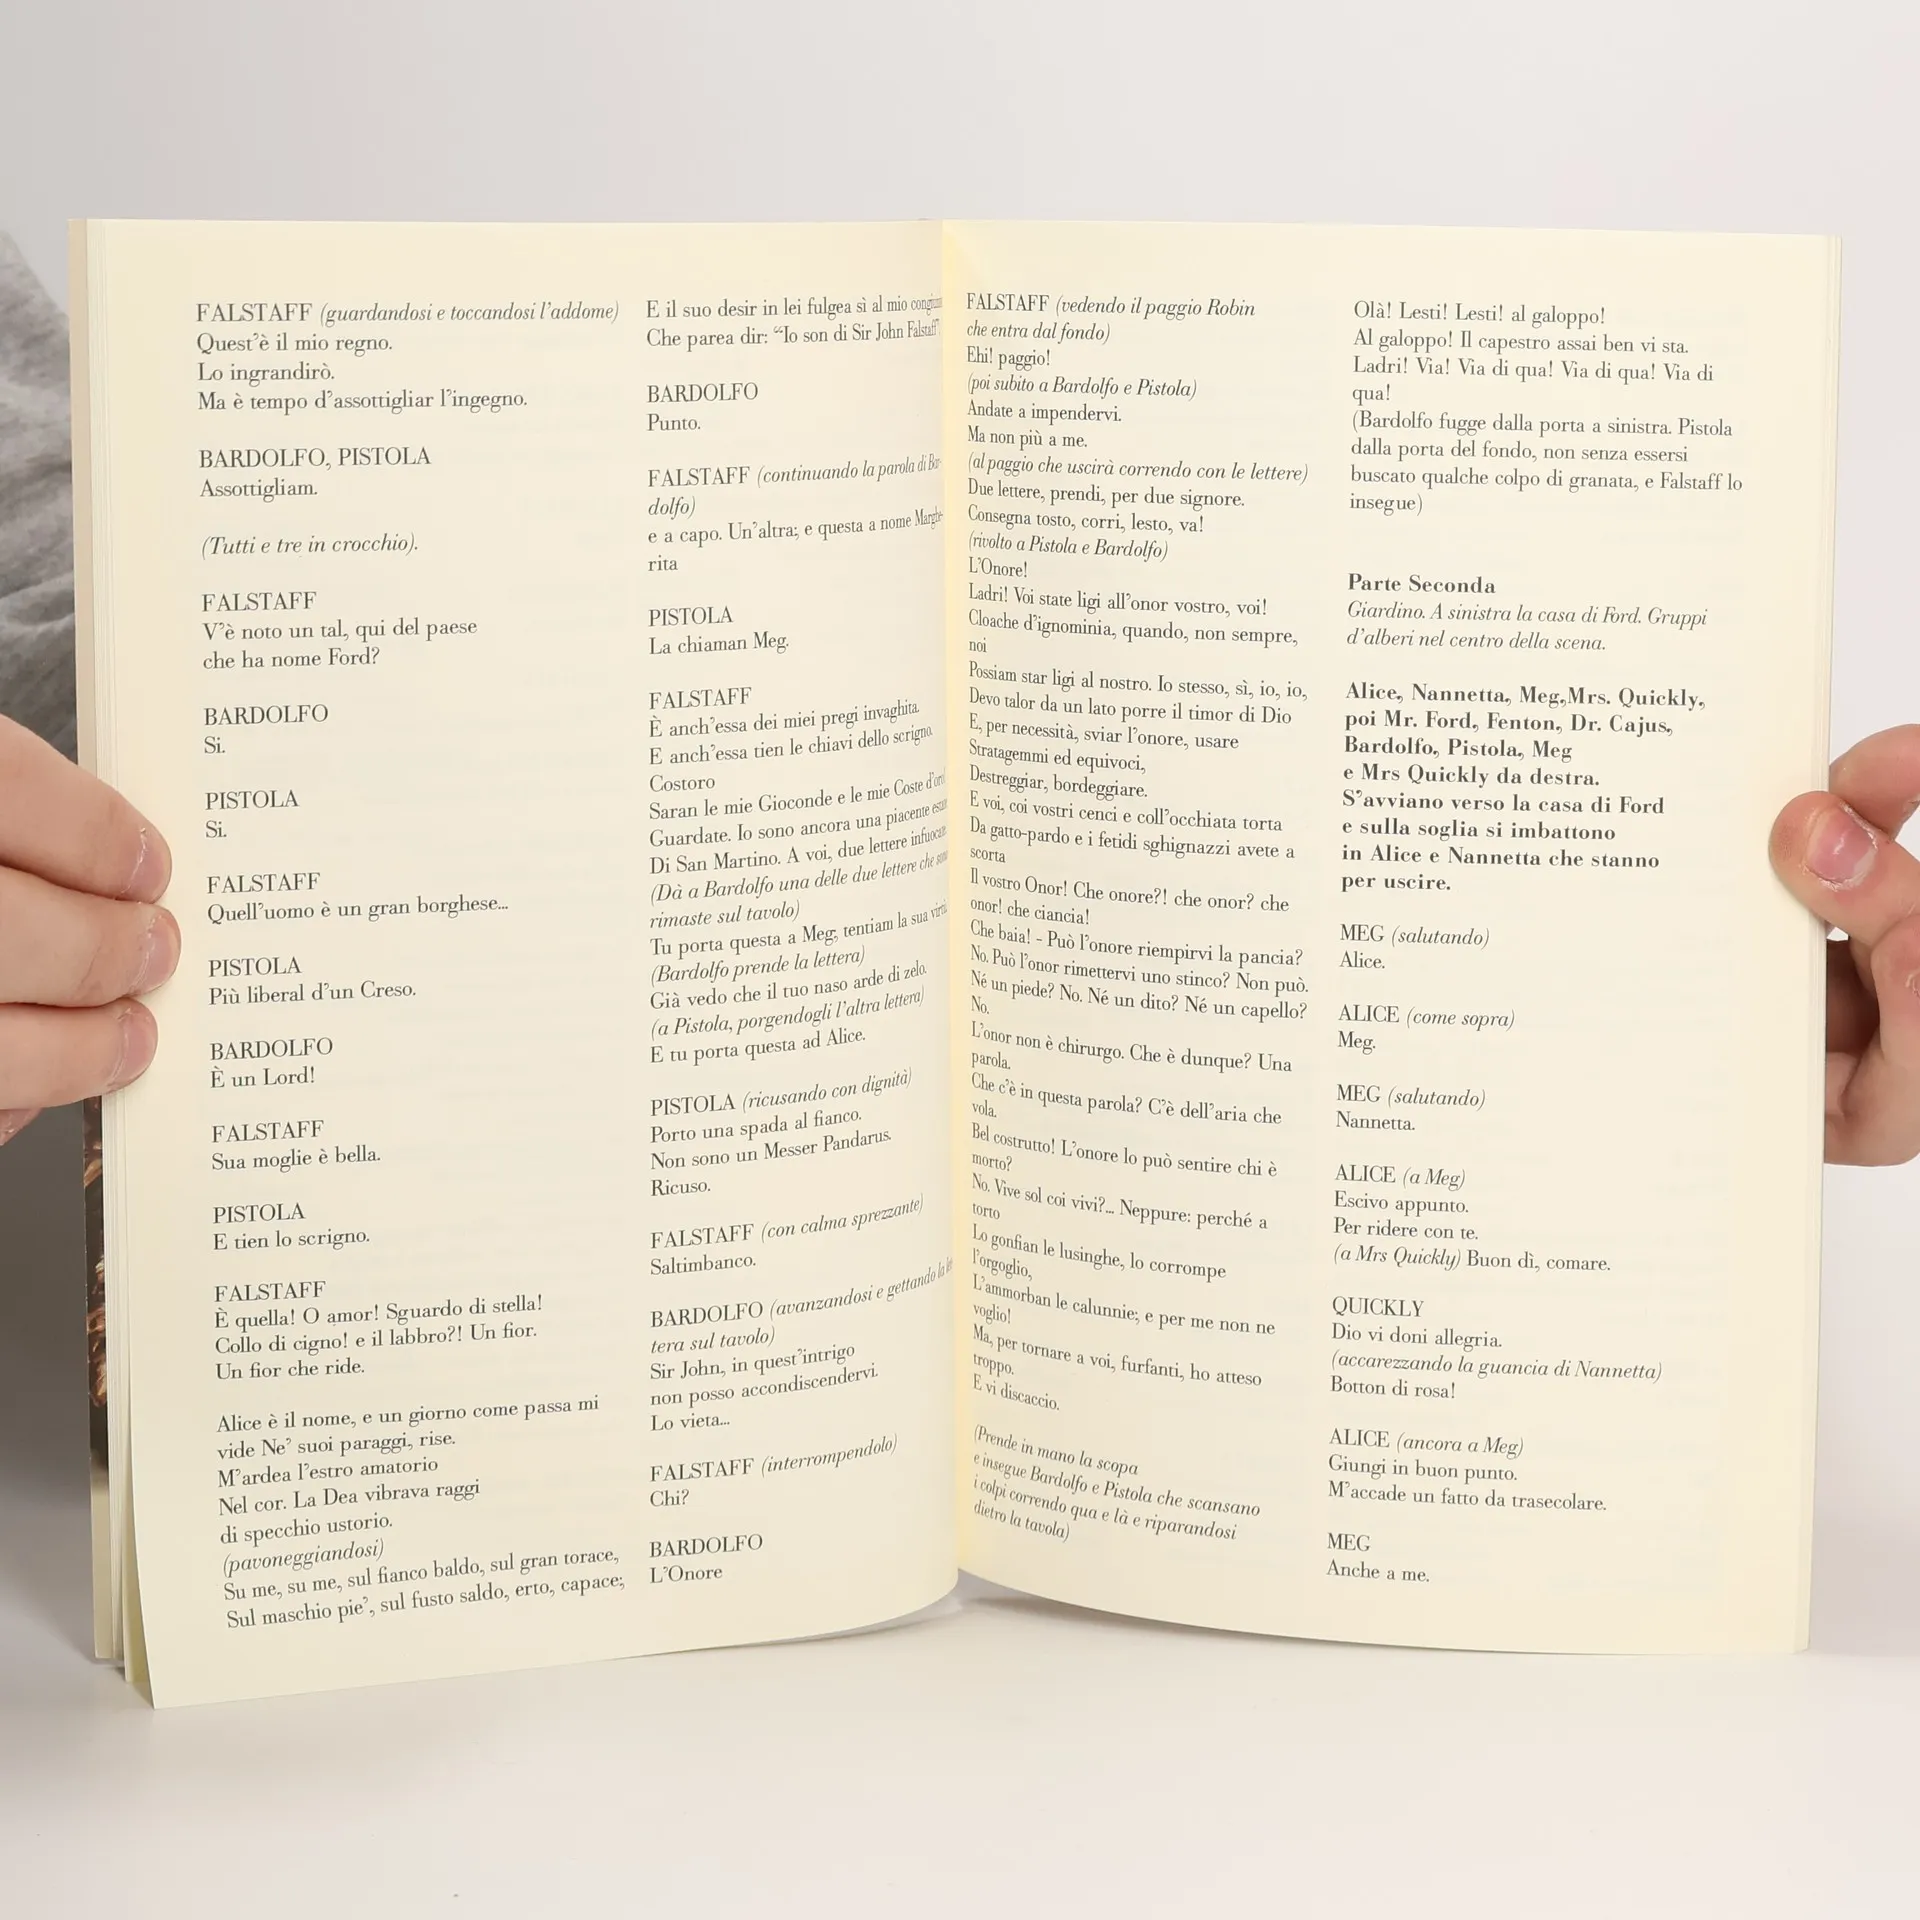 FALSTAFF (guardandosi e toccandosi l'addome)
Quest'è il mio regno.
Lo ingrandirò.
Ma è tempo d'assottigliar l'ingegno.
BARDOLFO, PISTOLA
Assottigliam.
(Tutti e tre in crocchio).
FALSTAFF
V'è noto un tal, qui del paese
che ha nome Ford?
BARDOLFO
Si.
PISTOLA
Si.
FALSTAFF
Quell'uomo è un gran borghese...
PISTOLA
Più liberal d'un Creso.
BARDOLFO
È un Lord!
FALSTAFF
Sua moglie è bella.
PISTOLA
E tien lo scrigno.
FALSTAFF
È quella! O amor! Sguardo di stella!
Collo di cigno! e il labbro?! Un fior.
Un fior che ride.
Alice è il nome, e un giorno come passa mi
vide Ne' suoi paraggi, rise.
M'ardea l'estro amatorio
Nel cor. La Dea vibrava raggi
di specchio ustorio.
(pavoneggiandosi)
Su me, su me, sul fianco baldo, sul gran torace,
Sul maschio pie', sul fusto saldo, erto, capace;
E il suo desir in lei fulgea sì al mio
Che parea dir: “Io son di Sir John Falstaff”
BARDOLFO
Punto.
FALSTAFF (continuando la parola di Bar-
dolfo)
e a capo. Un'altra; e questa a nome Marghe-
rita
PISTOLA
La chiaman Meg.
FALSTAFF
È anch'essa dei miei pregi invaghita.
E anch'essa tien le chiavi dello scrigno.
Costoro
Saran le mie Gioconde e le mie Coste d'oro!
Guardate. Io sono ancora una piacente
Di San Martino. A voi, due lettere
(Dà a Bardolfo una delle due lettere che
rimaste sul tavolo)
Tu porta questa a Meg, tentiam la sua
(Bardolfo prende la lettera)
Già vedo che il tuo naso arde di zelo.
(a Pistola, porgendogli l'altra lettera)
E tu porta questa ad Alice.
PISTOLA (ricusando con dignità)
Porto una spada al fianco.
Non sono un Messer Pandarus.
Ricuso.
FALSTAFF (con calma sprezzante)
Saltimbanco.
BARDOLFO (avanzandosi e gettando la
tera sul tavolo)
Sir John, in quest'intrigo
non posso accondiscendervi.
Lo vieta...
FALSTAFF (interrompendolo)
Chi?
BARDOLFO
L'Onore
FALSTAFF (vedendo il paggio Robin
che entra dal fondo)
Ehi! paggio!
(poi subito a Bardolfo e Pistola)
Andate a impendervi.
Ma non più a me.
(al paggio che uscirà correndo con le lettere)
Due lettere, prendi, per due signore.
Consegna tosto, corri, lesto, va!
(rivolto a Pistola e Bardolfo)
L'Onore!
Ladri! Voi state ligi all'onor vostro, voi!
Cloache d'ignominia, quando, non sempre,
noi
Possiam star ligi al nostro. Io stesso, sì, io, io,
Devo talor da un lato porre il timor di Dio
E, per necessità, sviar l'onore, usare
Stratagemmi ed equivoci,
Destreggiar, bordeggiare.
E voi, coi vostri cenci e coll'occhiata torta
Da gatto-pardo e i fetidi sghignazzi avete a
scorta
Il vostro Onor! Che onore?! che onor? che
onor! che ciancia!
Che baia! - Può l'onore riempirvi la pancia?
No. Può l'onor rimettervi uno stinco? Non può.
Né un piede? No. Né un dito? Né un capello?
No.
L'onor non è chirurgo. Che è dunque? Una
parola.
Che c'è in questa parola? C'è dell'aria che
vola.
Bel costrutto! L'onore lo può sentire chi è
morto?
No. Vive sol coi vivi?... Neppure: perché a
torto
Lo gonfian le lusinghe, lo corrompe
l'orgoglio,
L'ammorban le calunnie; e per me non ne
voglio!
Ma, per tornare a voi, furfanti, ho atteso
troppo.
E vi discaccio.
(Prende in mano la scopa
e insegue Bardolfo e Pistola che scansano
i colpi correndo qua e là e riparandosi
dietro la tavola)
Olà! Lesti! Lesti! al galoppo!
Al galoppo! Il capestro assai ben vi sta.
Ladri! Via! Via di qua! Via di qua! Via di
qua!
(Bardolfo fugge dalla porta a sinistra. Pistola
dalla porta del fondo, non senza essersi
buscato qualche colpo di granata, e Falstaff lo
insegue)
Parte Seconda
Giardino. A sinistra la casa di Ford. Gruppi
d'alberi nel centro della scena.
Alice, Nannetta, Meg,Mrs. Quickly,
poi Mr. Ford, Fenton, Dr. Cajus,
Bardolfo, Pistola, Meg
e Mrs Quickly da destra.
S'avviano verso la casa di Ford
e sulla soglia si imbattono
in Alice e Nannetta che stanno
per uscire.
MEG (salutando)
Alice.
ALICE (come sopra)
Meg.
MEG (salutando)
Nannetta.
ALICE (a Meg)
Escivo appunto.
Per ridere con te.
(a Mrs Quickly) Buon dì, comare.
QUICKLY
Dio vi doni allegria.
(accarezzando la guancia di Nannetta)
Botton di rosa!
ALICE (ancora a Meg)
Giungi in buon punto.
M'accade un fatto da trasecolare.
MEG
Anche a me.